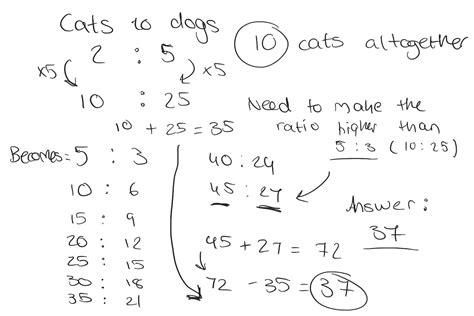 Cats to dogs
2 : 5
x5 x5
10 : 25
10 + 25 = 35
10 cats altogether
Need to make the
ratio higher than
5 : 3 (10 : 25)
Becomes = 5 : 3
10 : 6
15 : 9
20 : 12
25 : 15
30 : 18
35 : 21
40 : 24
45 : 27
45 + 27 = 72
72 - 35 = 37
Answer :
37